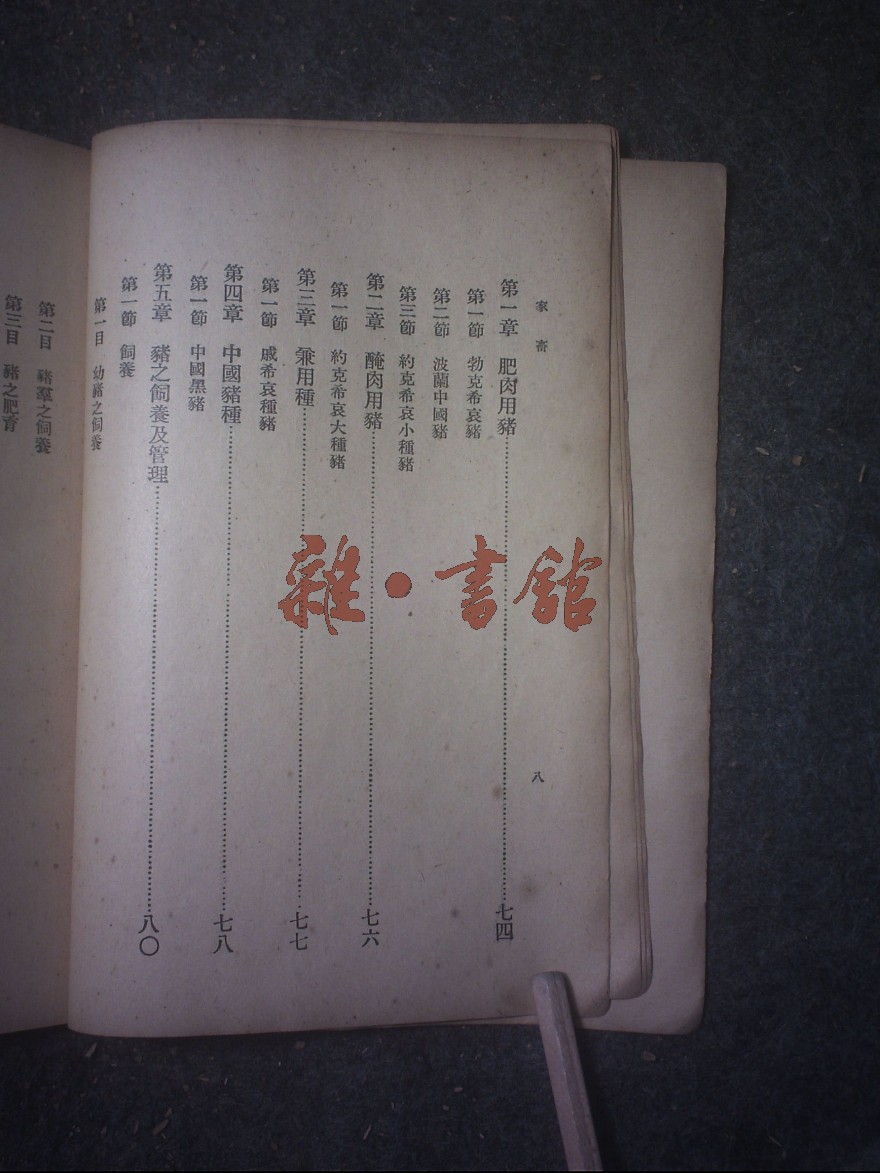 家畜
八
第一章　肥肉用豬……七四
第一節　勃克希哀豬
第二節　波蘭中國豬
第三節　約克希哀小種豬
第二章　醃肉用豬……七六
第一節　約克希哀大種豬
第三章　兼用種……七七
第一節　戚希哀種豬
第四章　中國豬種……七八
第一節　中國黑豬
第五章　豬之飼養及管理……八〇
第一節　飼養
第一目　幼豬之飼養
第二目　豬羣之飼養
第三目　豬之肥育
雜·書館